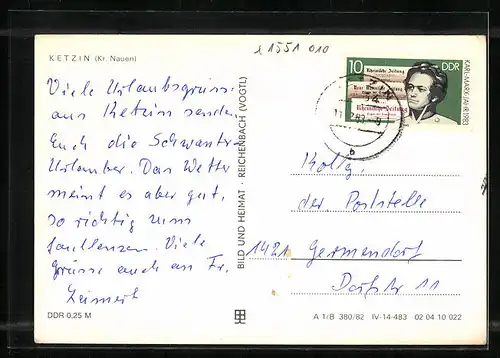 KETZIN (Kr. Nauen)
x 1551 010
10
DDR
KARL-MARX-JAHR 1983
Rheinische Zeitung
Neue Rheinische Zeitung
Rheinische Zeitung
b
Viele Urlaubsgrüsse
aus Ketzin senden
Euch die
Urlauber. Das Wetter
meint es aber gut,
so richtig zum
faullenzen. Viele
Grüsse auch an Fr.
BILD UND HEIMAT · REICHENBACH (VOGTL)
Koll.
der Poststelle
1421 Germendorf
Dorfstr 11
DDR 0,25 M
A 1/B 380/82 IV-14-483 02 04 10 022